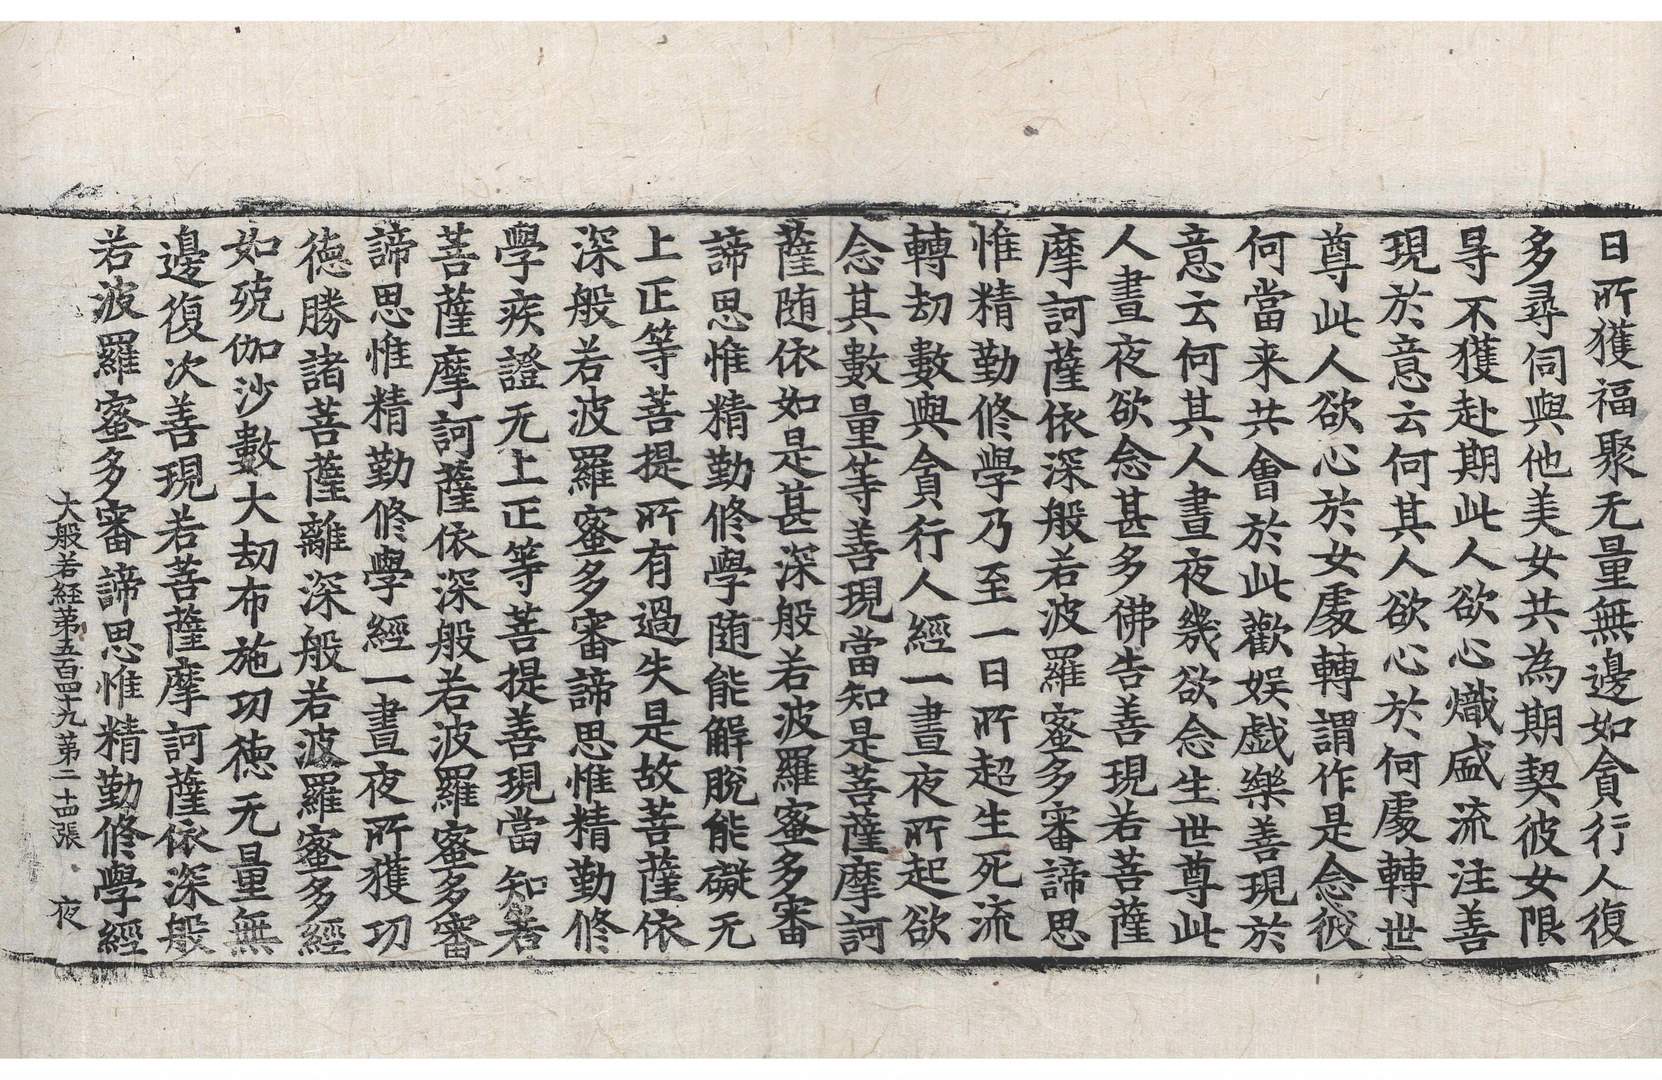 日所獲福聚无量無邊如貪行人復
多尋伺與他美女共為期契彼女限
㝵不獲赴期此人欲心熾盛流注善
現於意云何其人欲心於何處轉世
尊此人欲心於女處轉謂作是念彼
何當来共會於此歡娱戯樂善現於
意云何其人晝夜幾欲念生世尊此
人晝夜欲念甚多佛告善現若菩薩
摩訶薩依深般若波羅蜜多審諦思
惟精勤修學乃至一日所超生死流
轉劫數與貪行人經一晝夜所起欲
念其數量等善現當知是菩薩摩訶
薩随依如是甚深般若波羅蜜多審
諦思惟精勤修學随能解脫能礙无
上正等菩提所有過失是故菩薩依
深般若波羅蜜多審諦思惟精勤修
學疾證无上正等菩提善現當知若
菩薩摩訶薩依深般若波羅蜜多審
諦思惟精勤修學經一晝夜所獲功
徳勝諸菩薩離深般若波羅蜜多經
如殑伽沙數大劫布施功徳无量無
邊復次善現若菩薩摩訶薩依深般
若波羅蜜多審諦思惟精勤修學經
大般若経苐五百四十九苐二十四張 夜